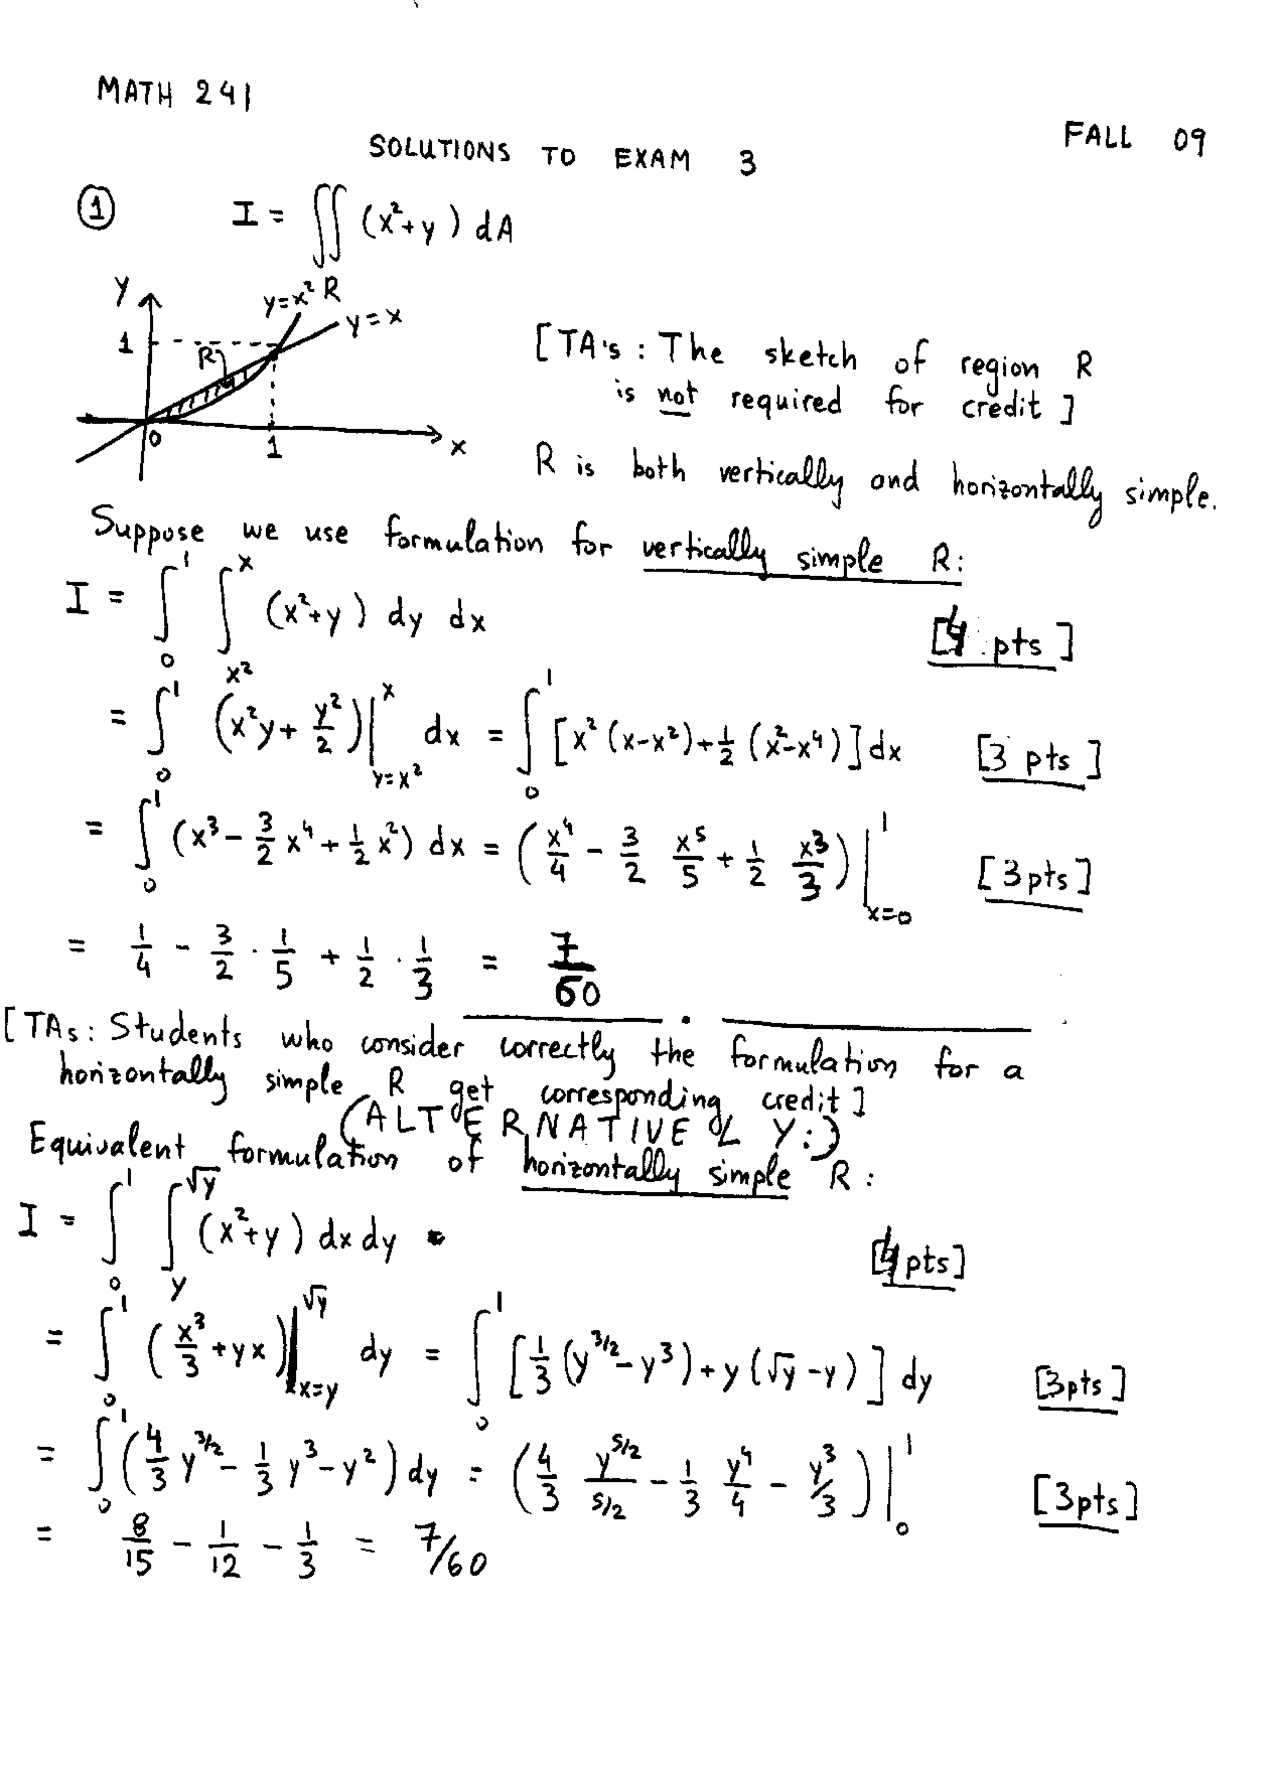 MATH 241
FALL 09
SOLUTIONS TO EXAM 3
① I = ∬_R (x²+y) dA
y
y=x²
y=x
1
R
0
1
x
[TA's: The sketch of region R
is not required for credit]
R is both vertically and horizontally simple.
Suppose we use formulation for vertically simple R:
I = ∫_0^1 ∫_{x²}^x (x²+y) dy dx [4 pts]
= ∫_0^1 (x²y + y²/2)|_{y=x²}^x dx = ∫_0^1 [x²(x-x²)+½(x²-x⁴)]dx [3 pts]
= ∫_0^1 (x³ - 3/2 x⁴ + 1/2 x²) dx = (x⁴/4 - 3/2 x⁵/5 + 1/2 x³/3)|_{x=0}^1 [3pts]
= 1/4 - 3/2 · 1/5 + 1/2 · 1/3 = 7/60
[TAs: Students who consider correctly the formulation for a
horizontally simple R get corresponding credit]
(ALTERNATIVELY:)
Equivalent formulation of horizontally simple R:
I = ∫_0^1 ∫_y^{√y} (x²+y) dx dy [4pts]
= ∫_0^1 (x³/3 + yx)|_{x=y}^{√y} dy = ∫_0^1 [1/3 (y^{3/2} - y³) + y(√y - y)] dy [3pts]
= ∫_0^1 (4/3 y^{3/2} - 1/3 y³ - y²) dy = (4/3 y^{5/2}/5/2 - 1/3 y⁴/4 - y³/3)|_0^1 [3pts]
= 8/15 - 1/12 - 1/3 = 7/60